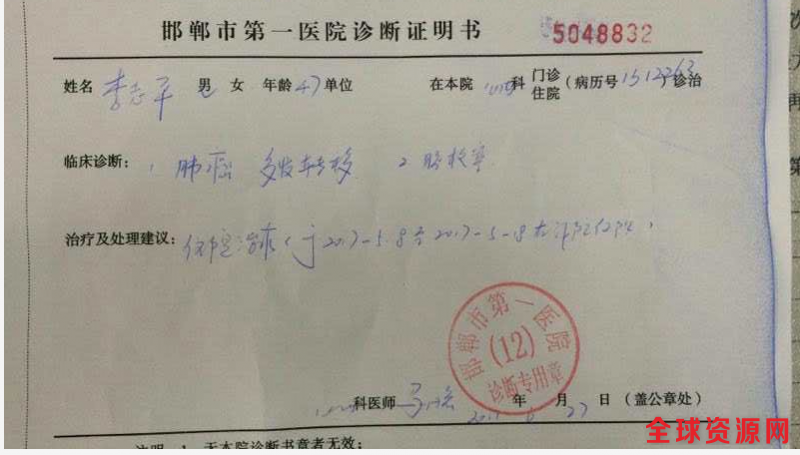 邯郸市第一医院诊断证明书
5048832
姓名 李志军 男 女 年龄 47 单位 在本院 科 门诊 住院 (病历号 1312263) 诊治
临床诊断: 1 肺癌 多发转移 2
治疗及处理建议: 住院治疗(于2017-5.8至2017-5-18在 住院)
邯郸市第一医院
(12)
诊断专用章
科医师 2017 年 6 月 27 日 (盖公章处)
全球资源网
注明: 1. 无本院诊断书章者无效;